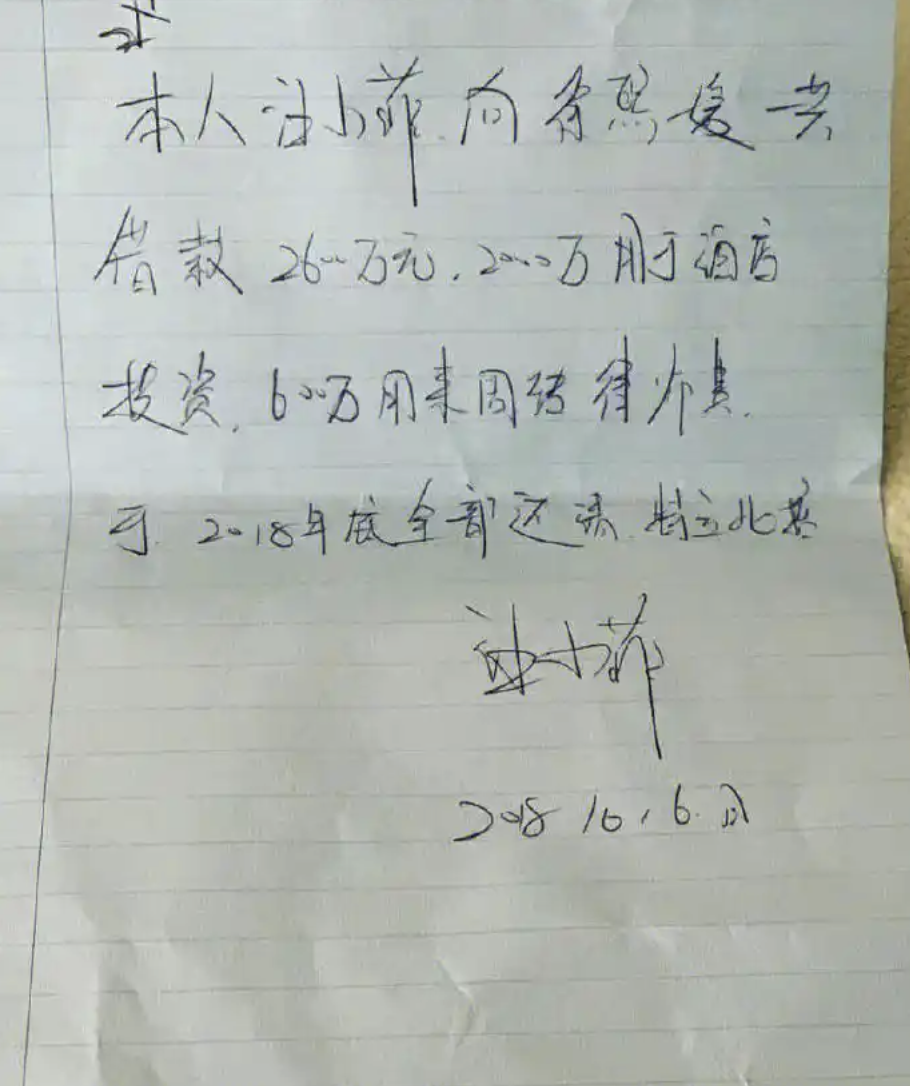 本人汪小菲向徐熙媛共
借款2600万元,2000万用于酒店
投资,600万用来周转律师费.
于2018年底全部还清.特立此据
汪小菲
2018 10.6.